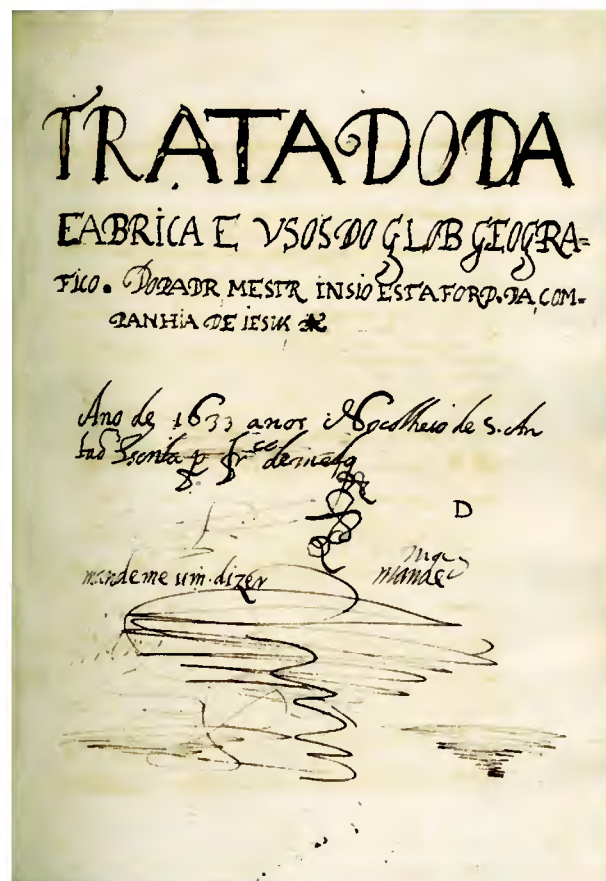 TRATADODA
FABRICA E VSOS DO GLOB GEOGRA=
FICO. DOPADR MESTR INSIO ESTAFORD. DA COM-
PANHIA DE IESUS
Ano de 1633 anos No colheio de S. An
taõ Escrita p frco de melo
D
mandeme um dizer
mande